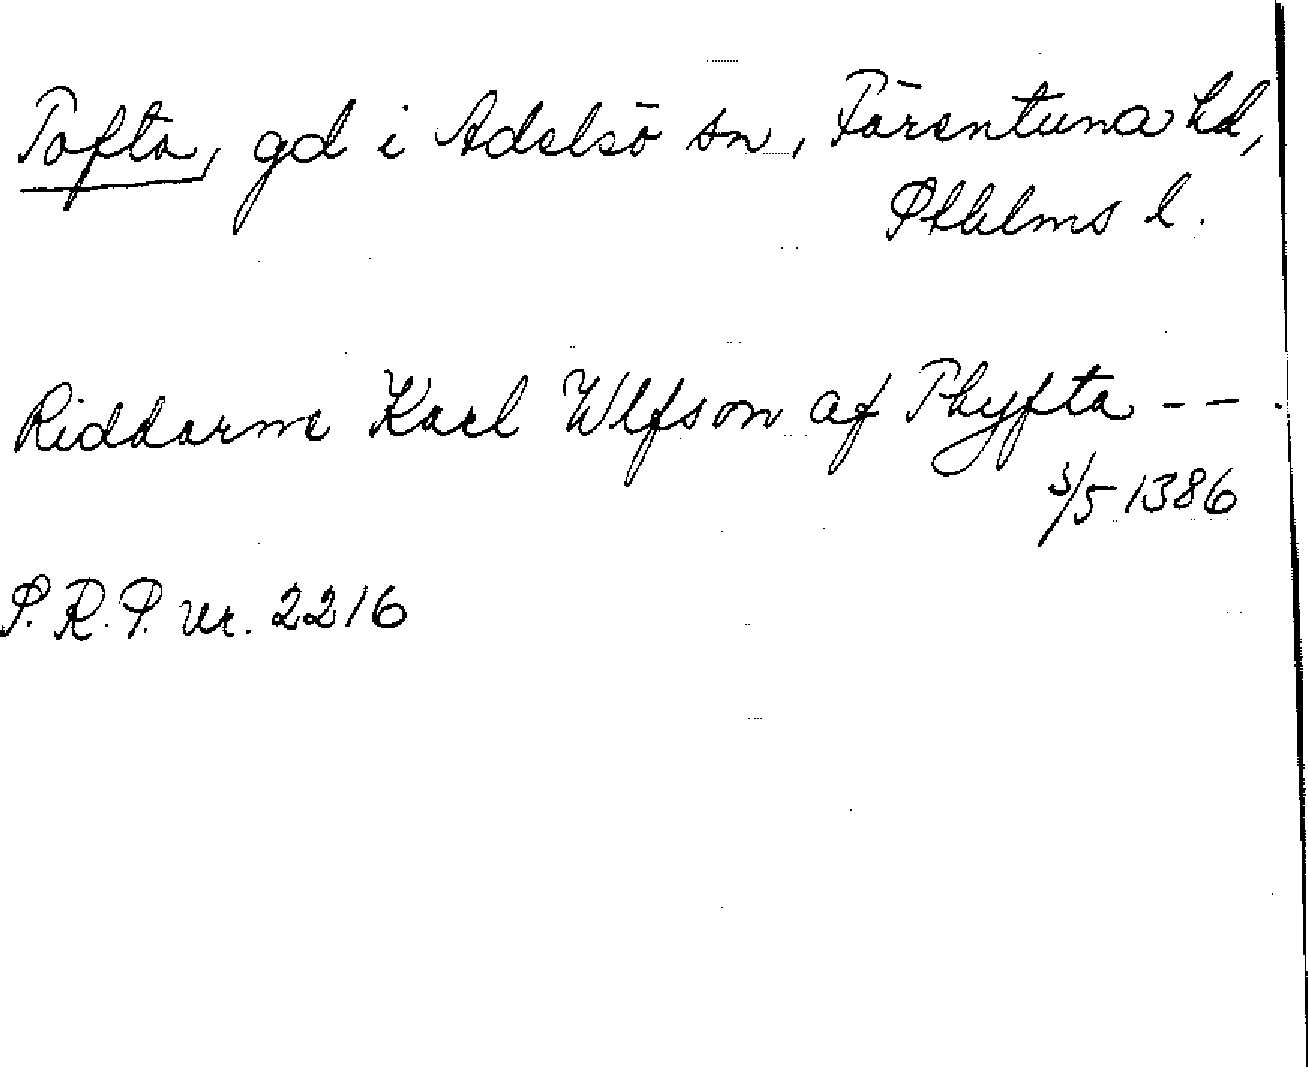 Tofta, gd i Adelsö sn, Färentuna hd,
Sthlms l.
Riddarne Karl Ulfson af Thyfta - - .
3/5 1386
S.R.P. nr. 2216